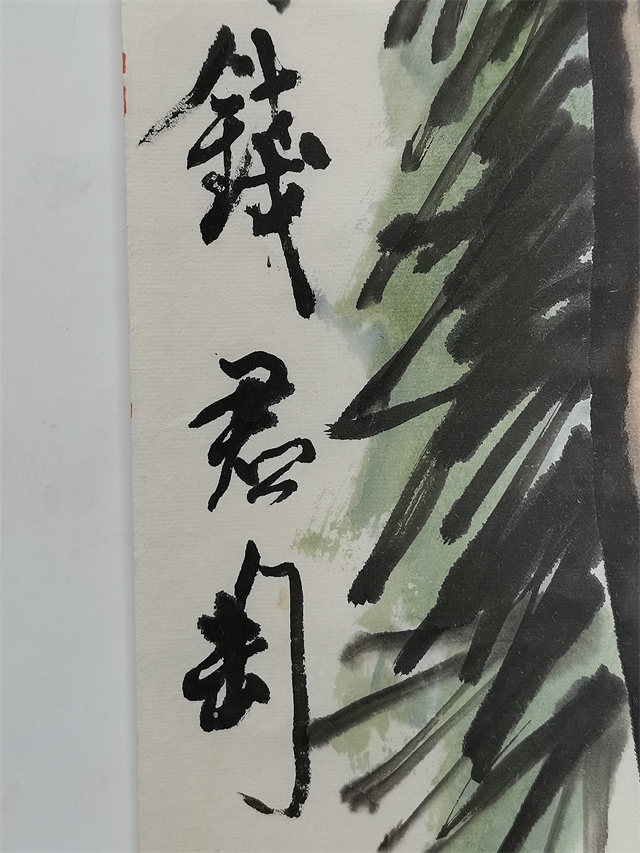 錢君匋